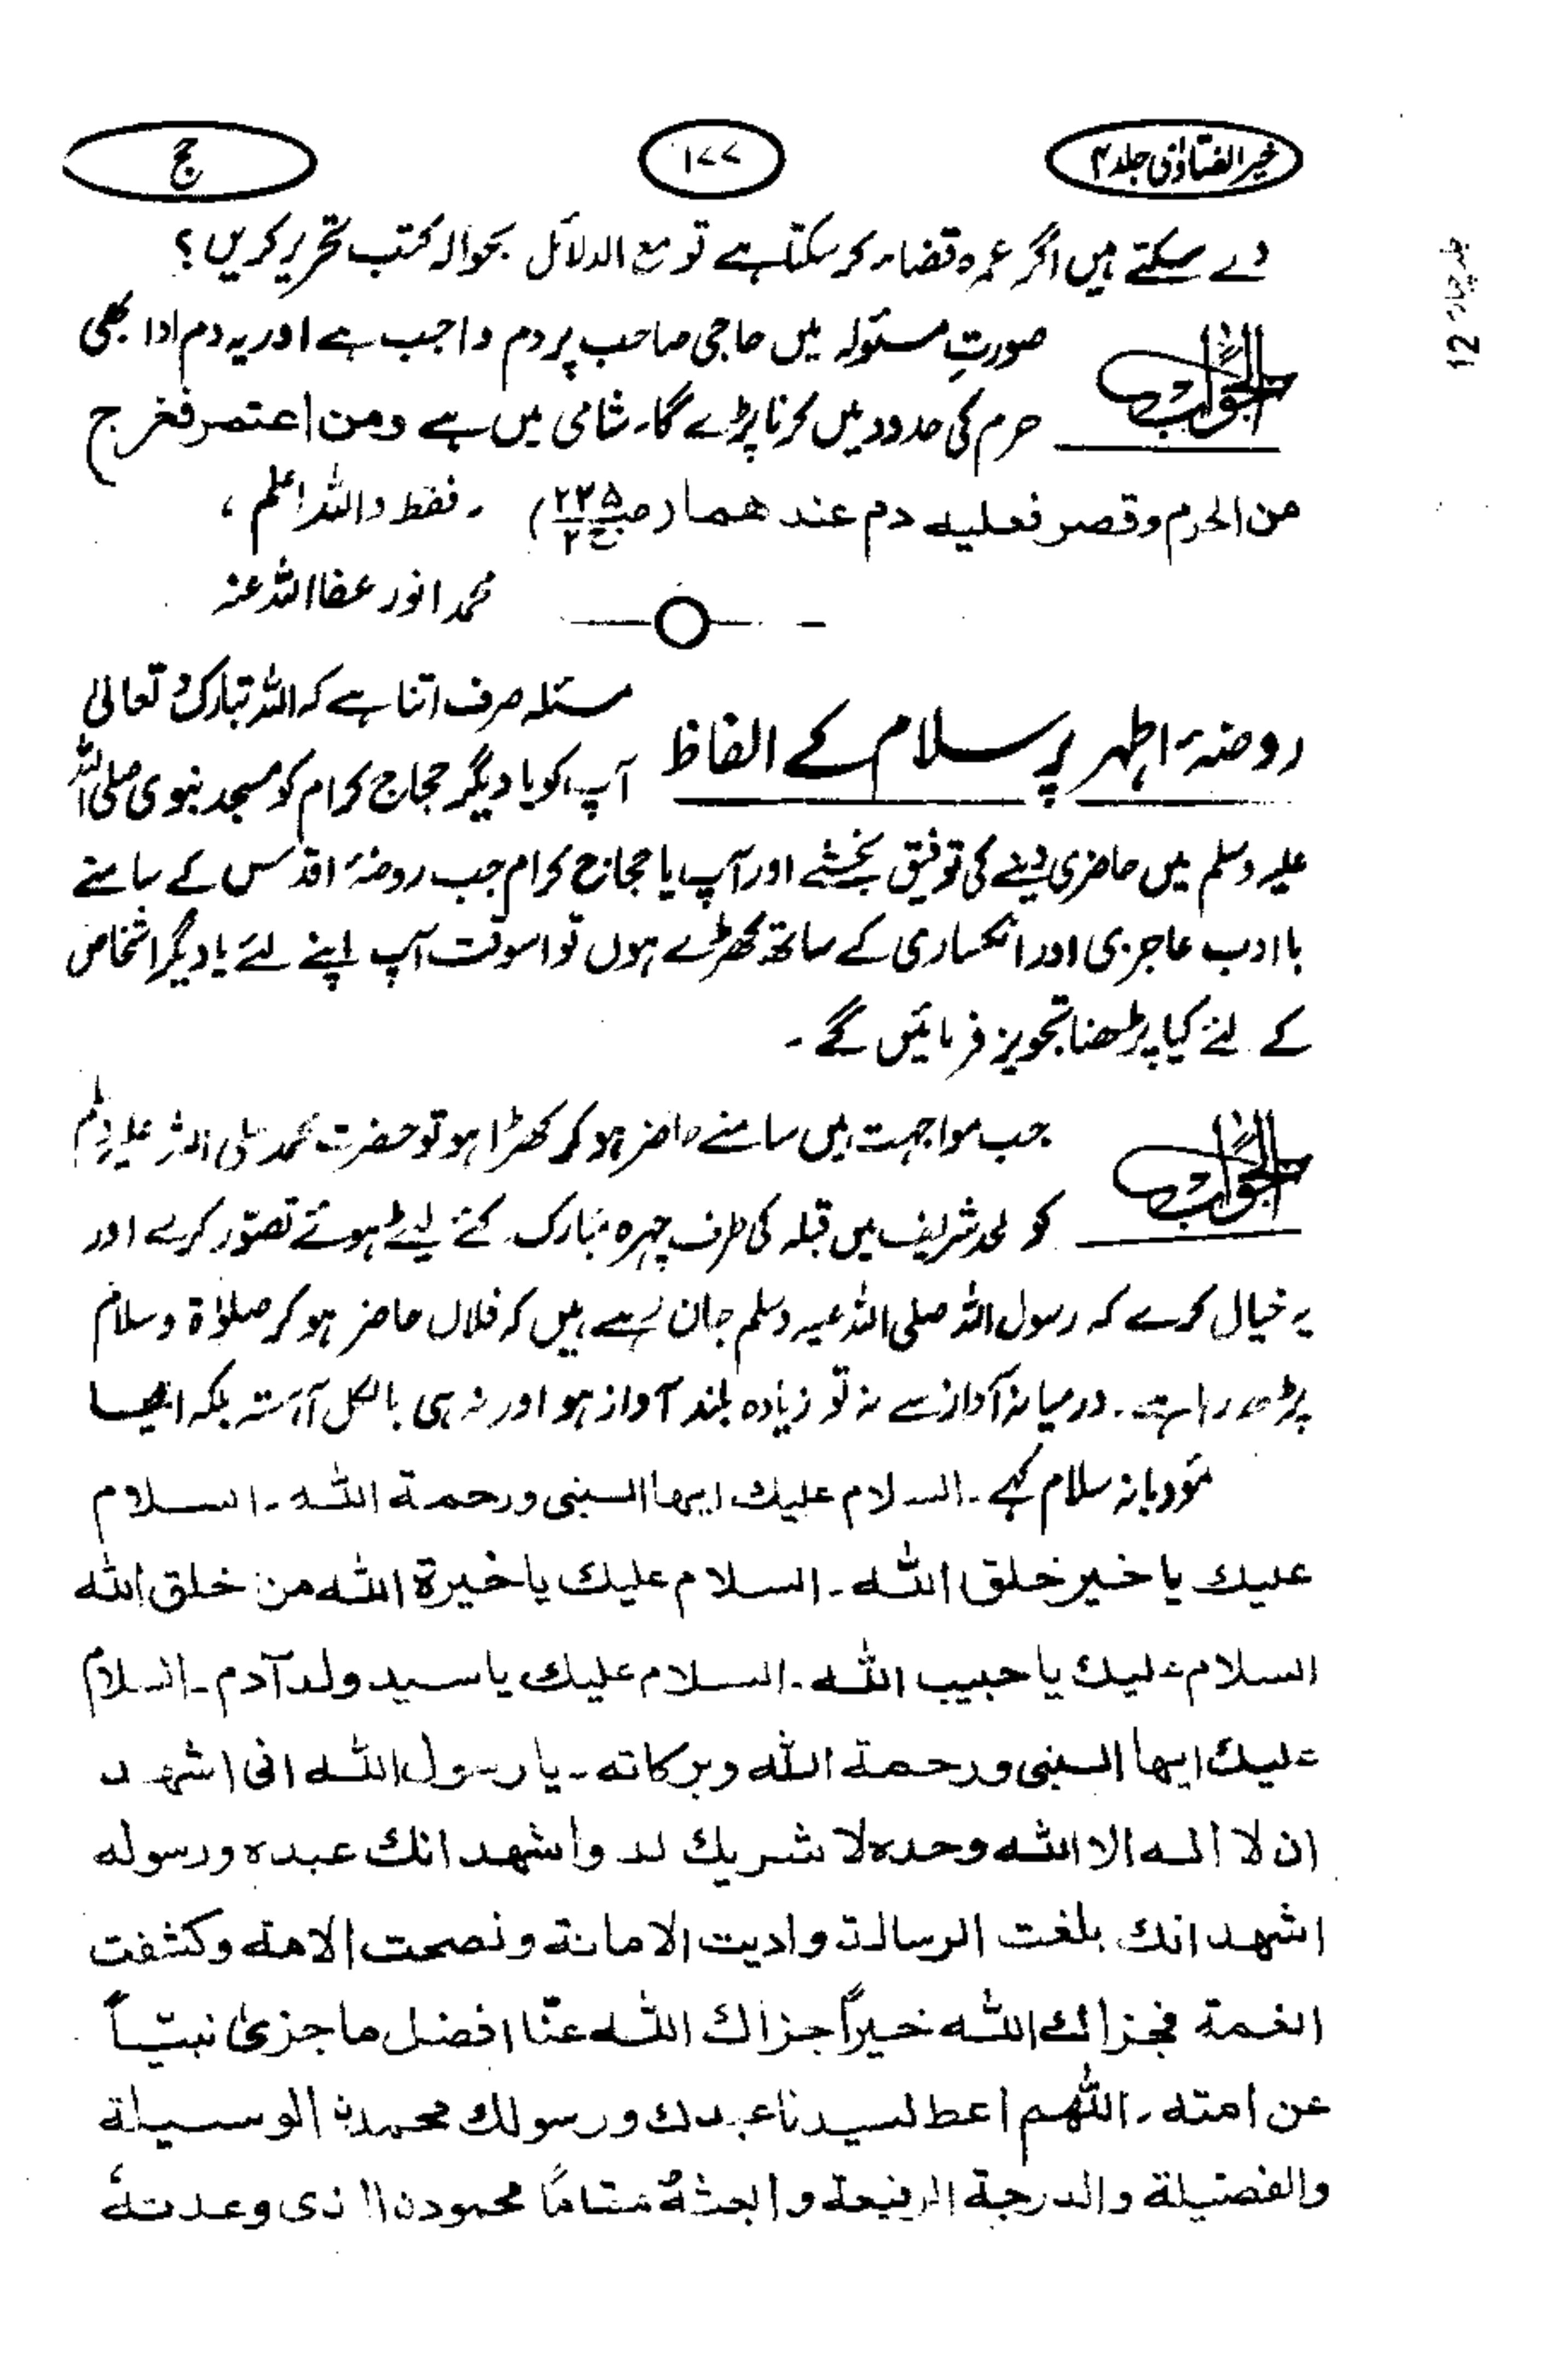 خیر الفتاویٰ جلد ۴
۱۷۷
حج
دے سکتے ہیں اگر عمرہ قضاء کر سکتا ہے تو مع الدلائل بحوالہ کتب تحریر کریں ؟
الجواب
صورتِ مسئولہ میں حاجی صاحب پر دم واجب ہے اور یہ دم ادا بھی
حرم کی حدود میں کرنا پڑے گا۔ شامی میں ہے ومن اعتمر فخرج
من الحرم وقصر فعلیہ دم عندھما (ص۲۲۵ ج۲) ۔ فقط واللہ اعلم ،
محمد انور عفا اللہ عنہ
روضۂ اطہر پر سلام کے الفاظ
مسئلہ صرف اتنا ہے کہ اللہ تبارک و تعالیٰ
آپ کو یا دیگر حجاج کرام کو مسجد نبوی صلی اللہ
علیہ وسلم میں حاضری دینے کی توفیق بخشے اور آپ یا حجاج کرام جب روضۂ اقدس کے سامنے
باادب عاجزی اور انکساری کے ساتھ کھڑے ہوں تو اسوقت آپ اپنے لئے یا دیگر اشخاص
کے لئے کیا پڑھنا تجویز فرمائیں گے ۔
الجواب
جب مواجہت میں سامنے حاضر ہو کر کھڑا ہو تو حضرت محمد صلی اللہ علیہ وسلم
کو لحد شریف میں قبلہ کی طرف چہرہ مبارک کئے لیٹے ہوئے تصوّر کرے اور
یہ خیال کرے کہ رسول اللہ صلی اللہ علیہ وسلم جان رہے ہیں کہ فلاں حاضر ہو کر صلوٰۃ وسلام
پڑھ رہا ہے ۔ درمیانہ آواز سے نہ تو زیادہ بلند آواز ہو اور نہ ہی بالکل آہستہ بلکہ ایسا
مؤدبانہ سلام کہے ۔ السلام علیک ایھا النبی ورحمۃ اللہ ۔ السلام
علیک یا خیر خلق اللہ ۔ السلام علیک یا خیرۃ اللہ من خلق اللہ
السلام علیک یا حبیب اللہ ۔ السلام علیک یا سید ولد آدم ۔ السلام
علیک ایھا النبی ورحمۃ اللہ وبرکاتہ ۔ یا رسول اللہ انی اشھد
ان لا الہ الا اللہ وحدہ لا شریک لہ وأشھد انک عبدہ ورسولہ
اشھد انک بلغت الرسالۃ وادیت الامانۃ ونصحت الامۃ وکشفت
الغمۃ فجزاک اللہ خیراً جزاک اللہ عنّا افضل ما جزیٰ نبیّاً
عن امتہ ۔ اللّٰھم اعط لسیدنا عبدک ورسولک محمدن الوسیلۃ
والفضیلۃ والدرجۃ الرفیعۃ وابعثہٗ مقاماً محمودن الذی وعدتہٗ